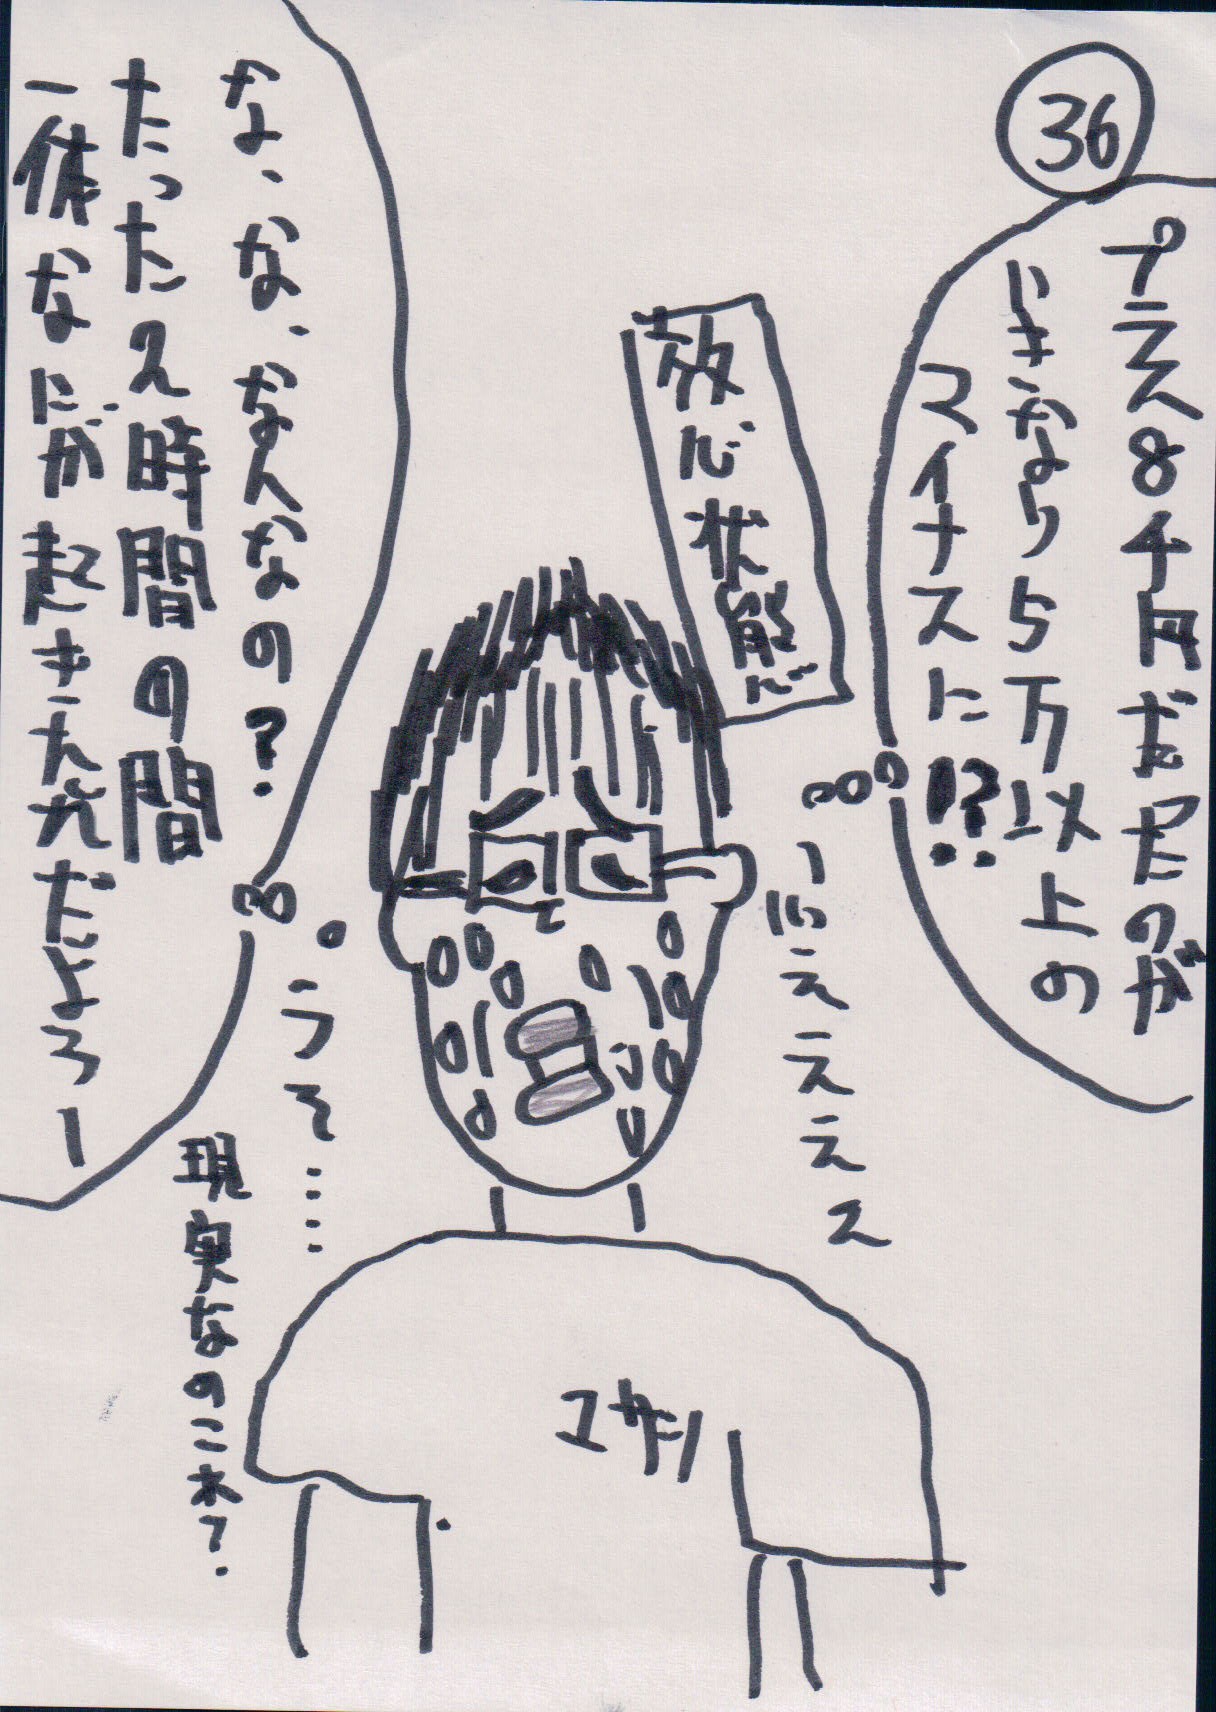 36
プラス8千円だったのが
いきなり5万以上の
マイナスに!?
放心状態
いいえええええ
な、な、なんなの?
たった2時間の間
一体なにが起きたんだよろー
うそ……
現実なのこれ?
ユサソ